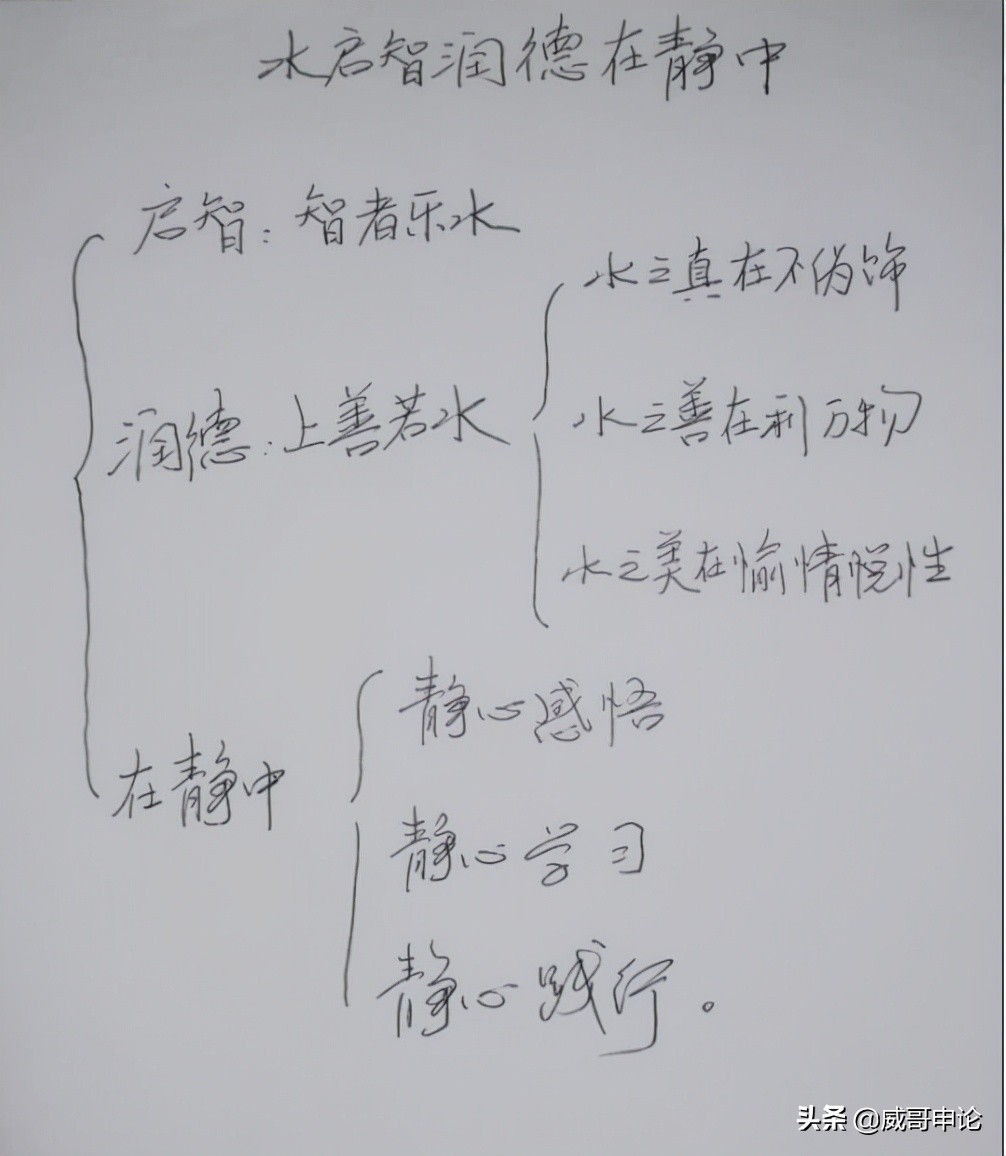 水启智润德在静中
启智：智者乐水
润德：上善若水
水之真在不伪饰
水之善在利万物
水之美在愉情悦性
在静中
静心感悟
静心学习
静心践行。
头条 @威哥申论